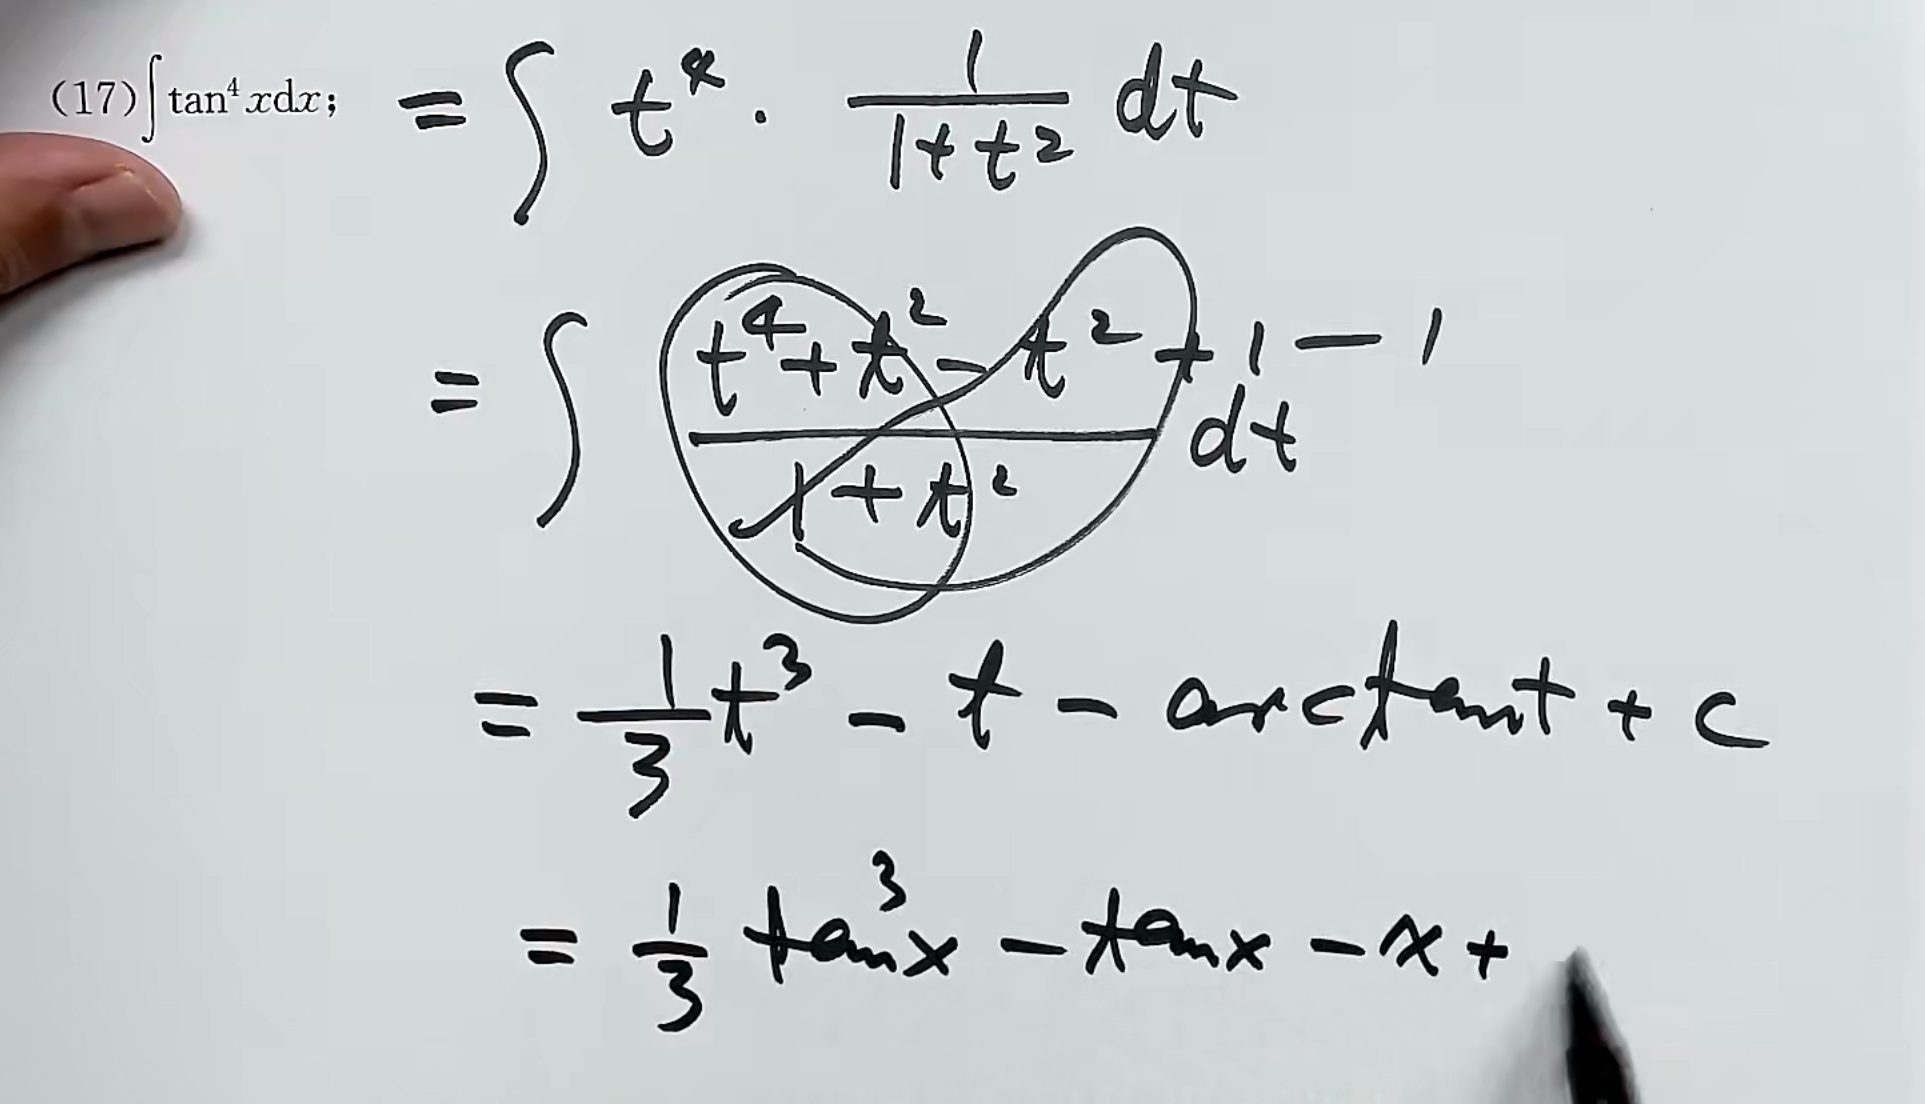 (17)∫tan⁴xdx; = ∫ t⁴ · 1/(1+t²) dt
= ∫ (t⁴+t²-t²+1-1)/(1+t²) dt
= 1/3 t³ - t - arctant + c
= 1/3 tan³x - tanx - x +